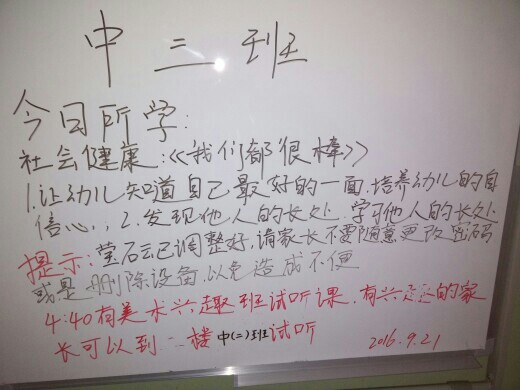 中三班
今日所学:
社会健康:《我们都很棒》
1.让幼儿知道自己最好的一面.培养幼儿的自
信心,;2.发现他人的长处.学习他人的长处.
提示:萤石云已调整好.请家长不要随意更改密码
或是删除设备.以免造成不便
4:40有美术兴趣班试听课.有兴趣的家
长可以到二楼中(二)班试听
2016.9.21